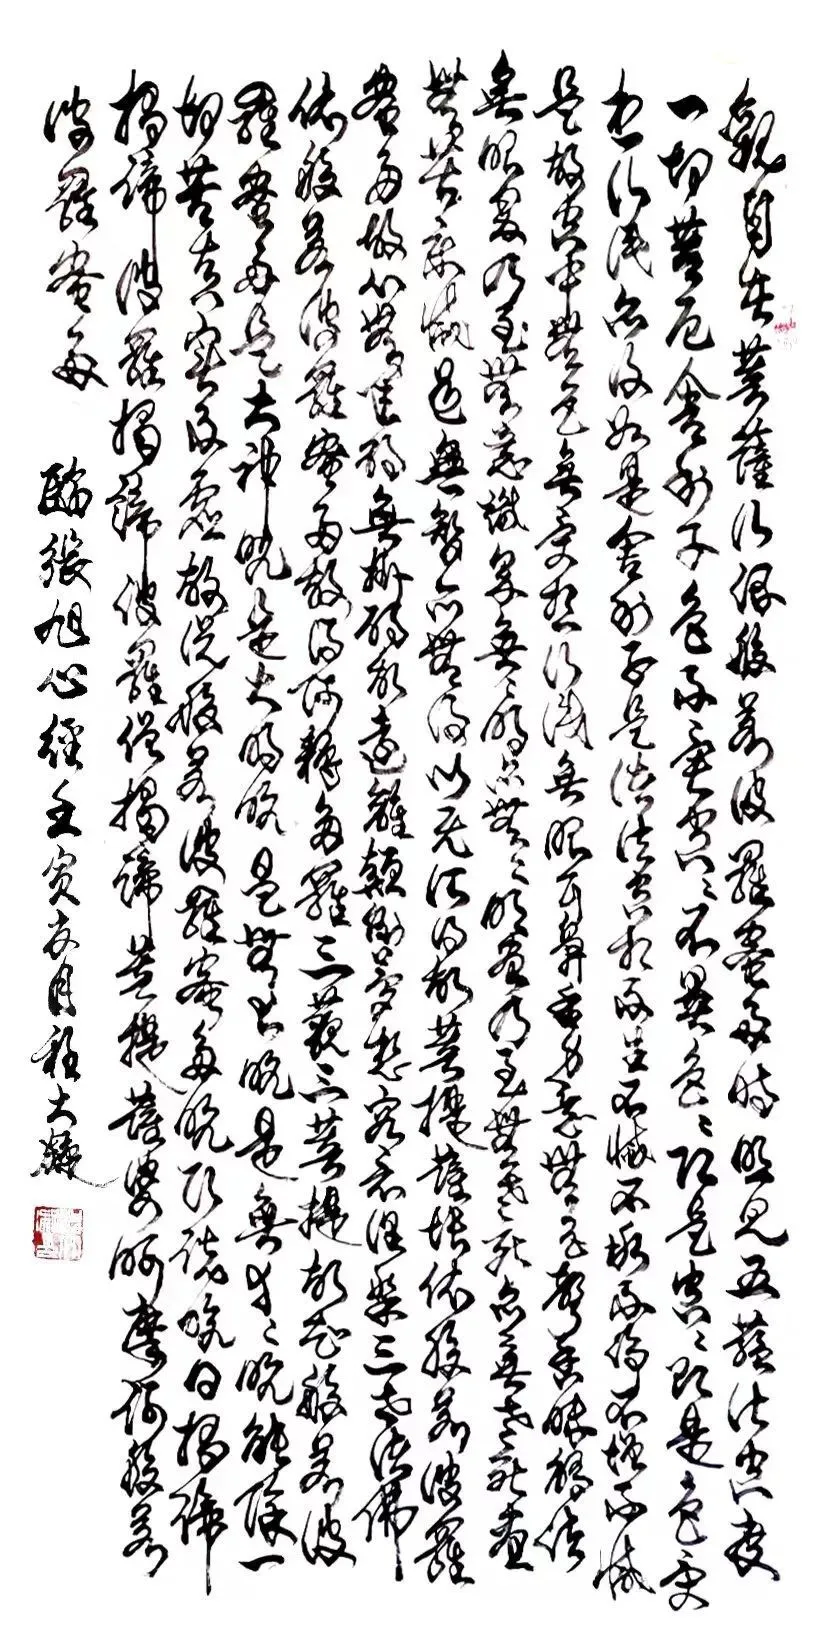 觀自在菩薩行深般若波羅蜜多時照見五蘊皆空度
一切苦厄舍利子色不異空空〻不異色〻即是空〻即是色受
想行識亦復如是舍利子是諸法空相不生不滅不垢不淨不增不減
是故空中無色無受想行識無眼耳鼻舌身意無色聲香味觸法
無眼界乃至無意識界無〻明亦無〻明盡乃至無老死亦無老死盡
無苦集滅道無智亦無得以無所得故菩提薩埵依般若波羅
蜜多故心無罣礙無罣礙故遠離顛倒夢想究竟涅槃三世諸佛
依般若波羅蜜多故得阿耨多羅三藐三菩提故知般若波
羅蜜多是大神咒是大明咒是無上咒是無等〻咒能除一
切苦真實不虛故說般若波羅蜜多咒即說咒曰揭諦
揭諦波羅揭諦波羅僧揭諦菩提薩婆訶摩訶般若
波羅蜜多
臨張旭心經壬寅友月程大